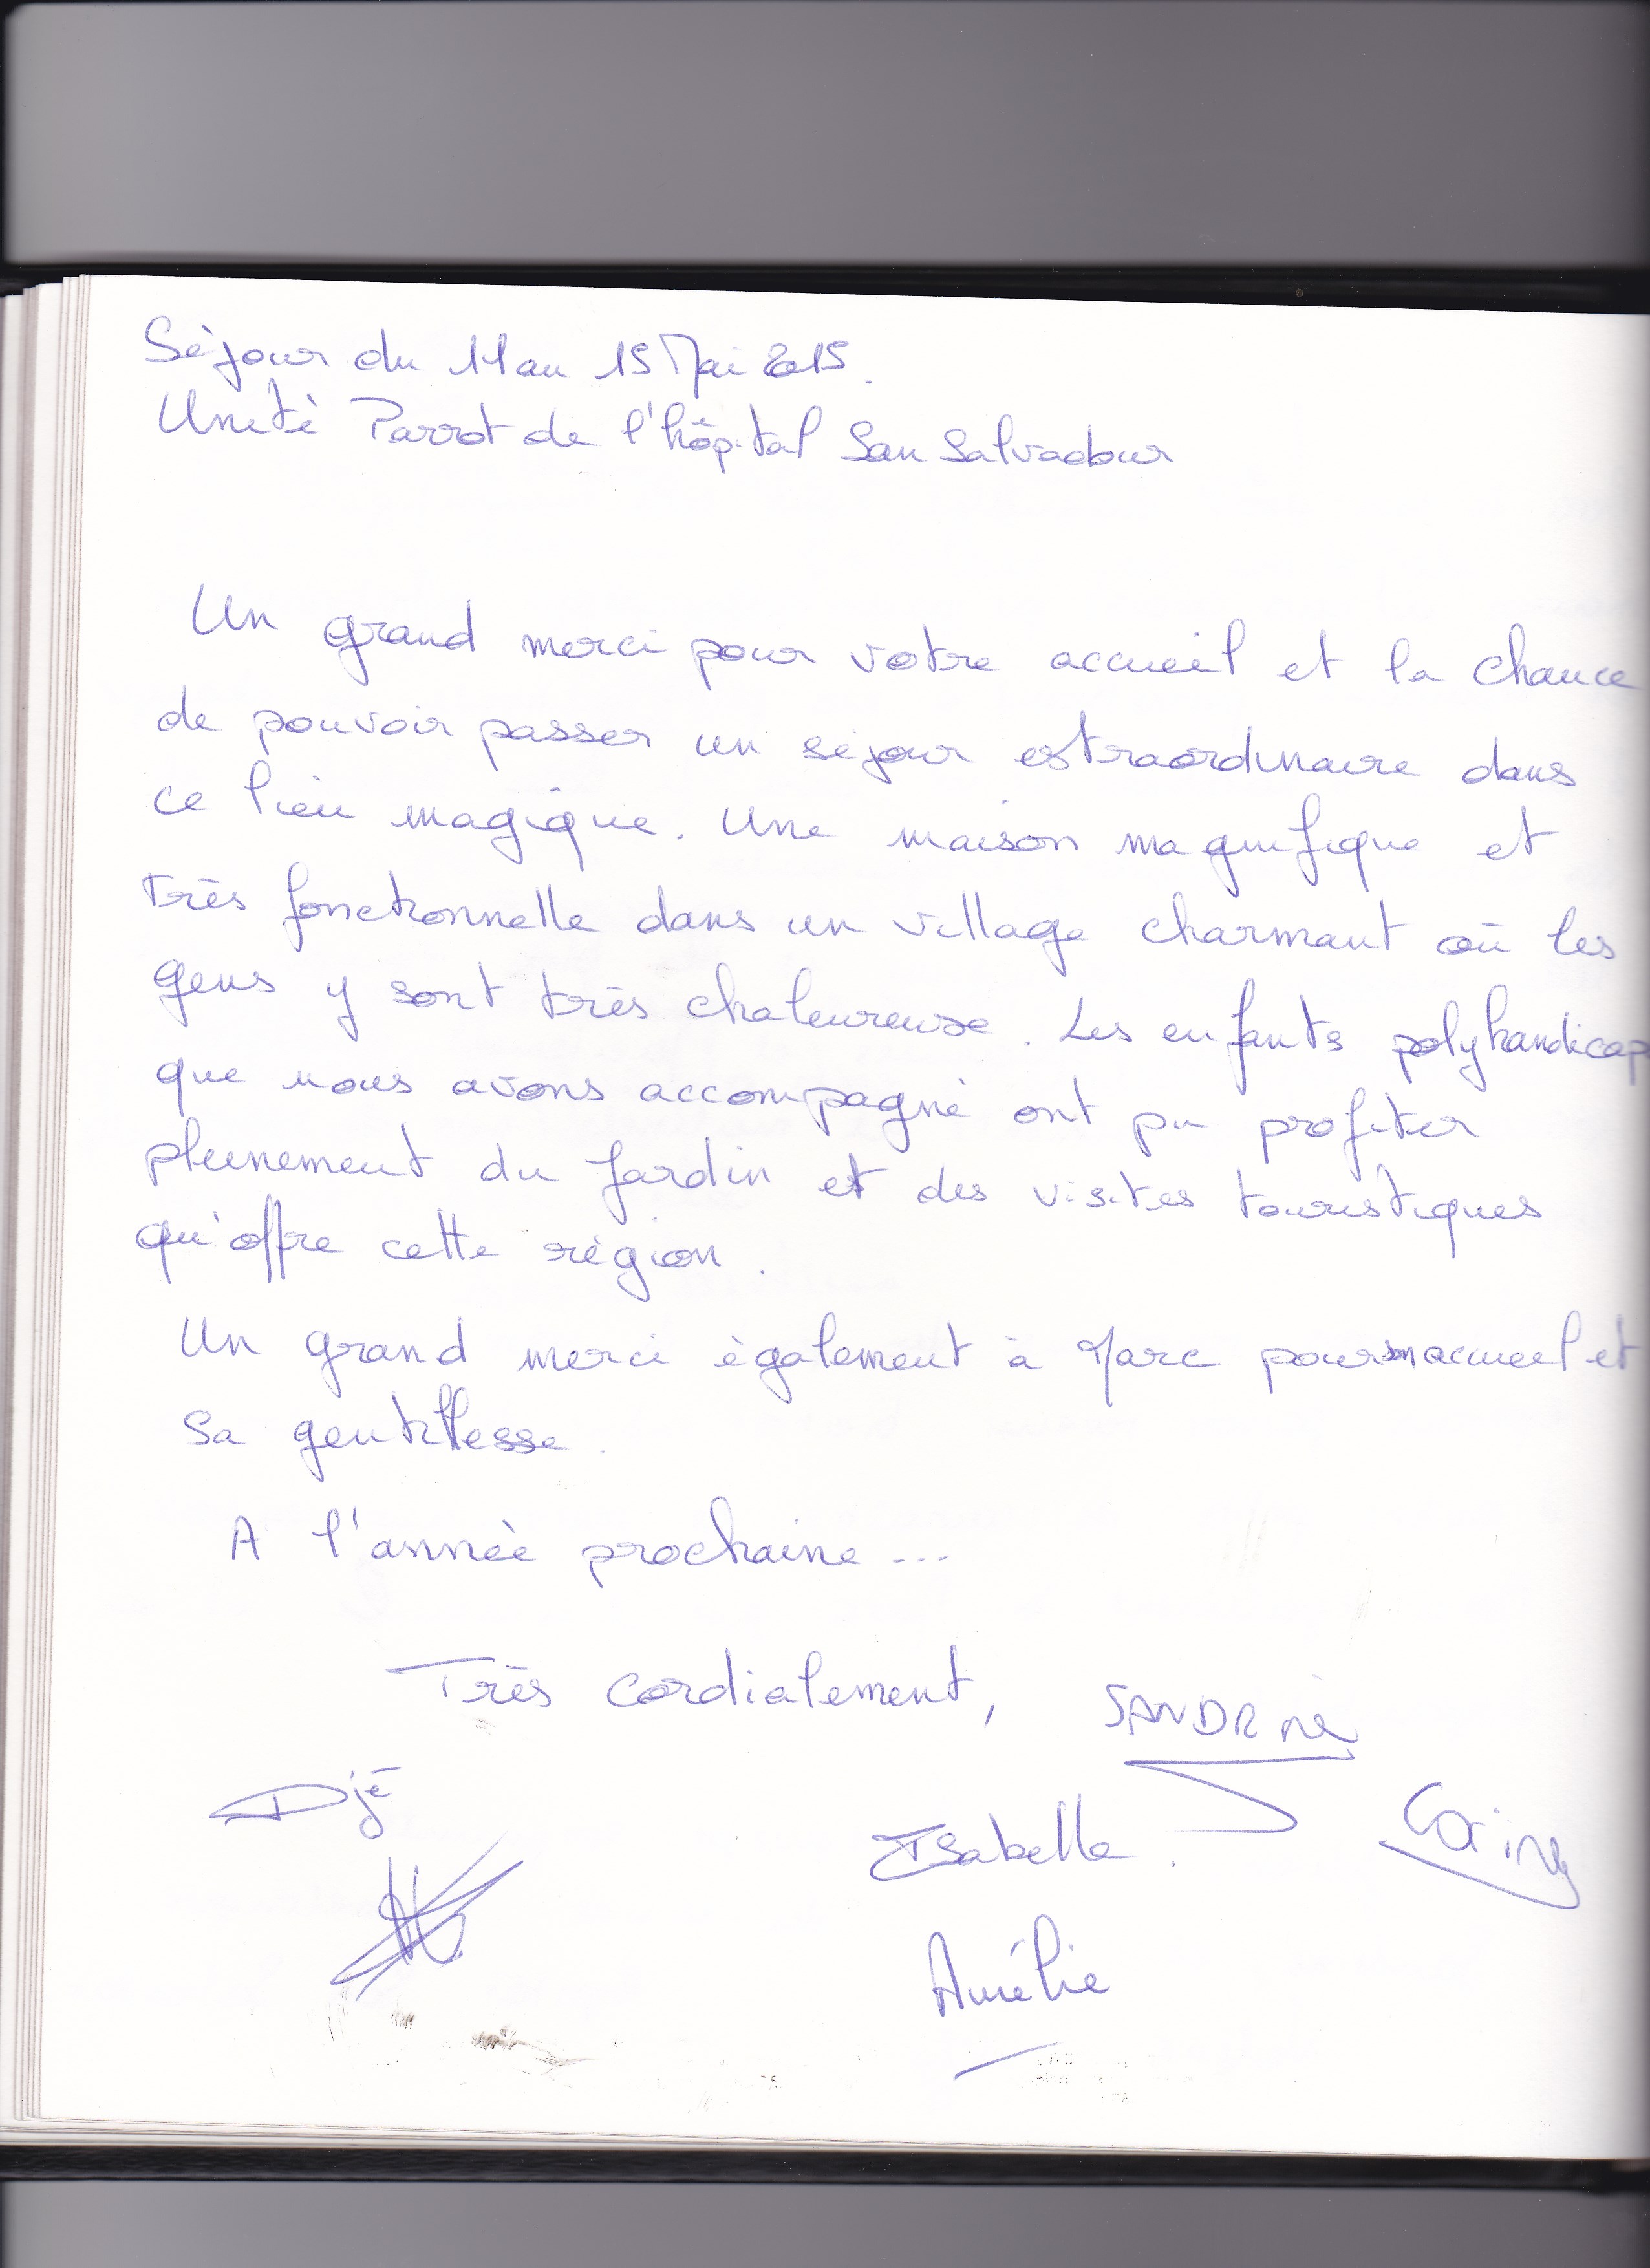 Séjour du 11 au 15 Mai 2015.
Unité Parrot de l'hôpital San Salvadour
Un grand merci pour votre accueil et la chance
de pouvoir passer un séjour extraordinaire dans
ce lieu magique. Une maison magnifique et
très fonctionnelle dans un village charmant où les
gens y sont très chaleureuse. Les enfants polyhandicap
que nous avons accompagné ont pu profiter
pleinement du jardin et des visites touristiques
qu'offre cette région.
Un grand merci également à Marc pour son accueil et
sa gentillesse.
A l'année prochaine ...
Très cordialement,
SANDRine
Djé
Isabelle.
Corine
Aurélie